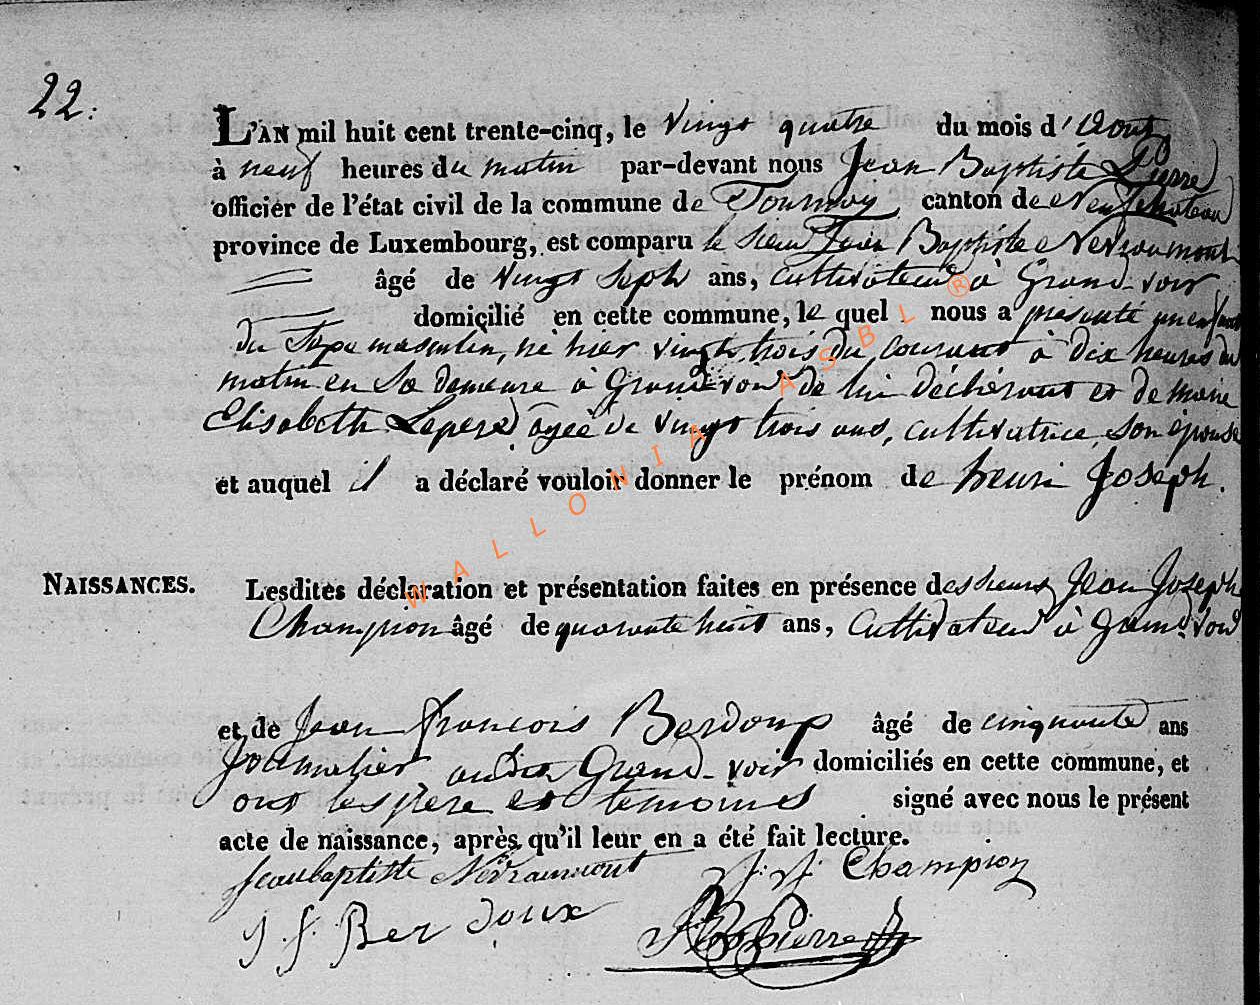 22.
L'AN mil huit cent trente-cinq, le vingt quatre du mois d'Aout
à neuf heures du matin par-devant nous Jean Baptiste Pierre
officier de l'état civil de la commune de Tournay canton de Neufchateau
province de Luxembourg, est comparu le sieur Jean Baptiste Nevraumont
âgé de vingt sept ans, cultivateur à Grand-voir
domicilié en cette commune, le quel nous a présenté un enfant
du sexe masculin, né hier vingt trois du courant à dix heures du
matin en sa demeure à Grand voir de lui déclarant et de marie
Elisabeth Leperé agée de vingt trois ans, cultivatrice, son épouse
et auquel il a déclaré vouloir donner le prénom de henri Joseph.
NAISSANCES.
Lesdites déclaration et présentation faites en présence des sieurs Jean Joseph
Champion âgé de quarante huit ans, Cultivateur à Grand-voir
et de Jean françois Berdoux âgé de cinquante ans
Journalier audit Grand-voir domiciliés en cette commune, et
ont les père et temoins signé avec nous le présent
acte de naissance, après qu'il leur en a été fait lecture.
Jeanbaptiste Névraumont J. J. Champion
J f Ber doux JB Pierre
WALLONIA ASBL ®